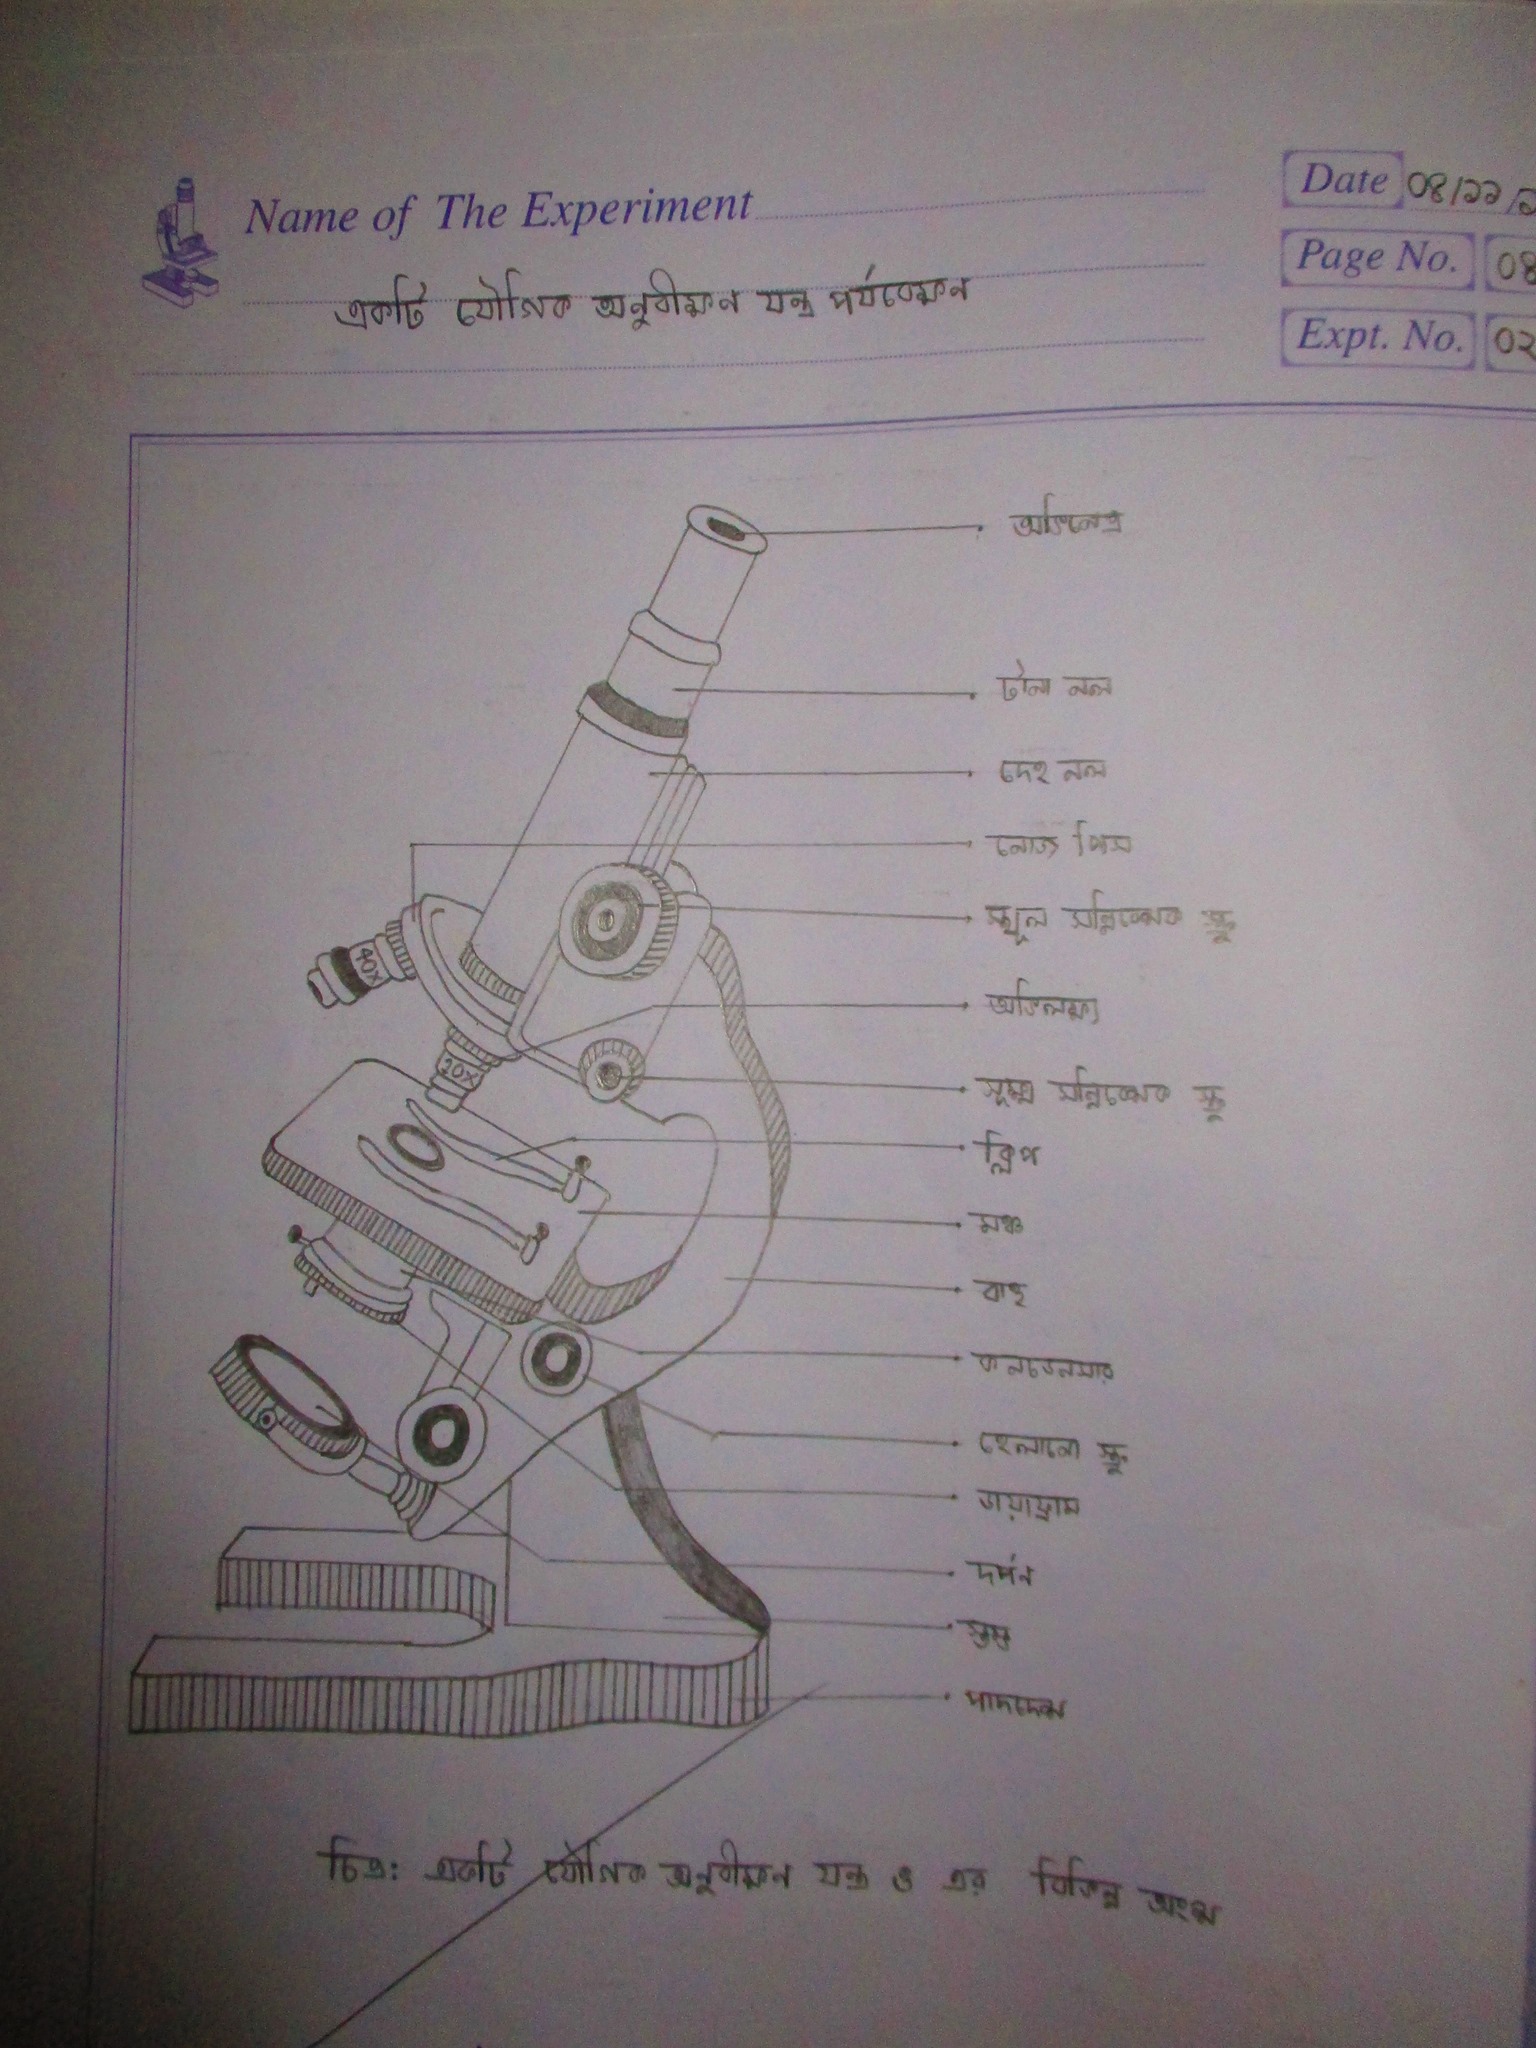 Name of The Experiment
একটি যৌগিক অনুবীক্ষন যন্ত্র পর্যবেক্ষন
Date ০৪/১১/২
Page No. ০৪
Expt. No. ০২
অভিনেত্র
টানা নল
দেহ নল
নোজ পিস
40X
স্থূল সন্নিবেশক স্ক্রু
অভিলক্ষ্য
10X
সূক্ষ্ম সন্নিবেশক স্ক্রু
ক্লিপ
মঞ্চ
বাহু
কনডেনসার
হেলানো স্ক্রু
ডায়াফ্রাম
দর্পন
স্তম্ভ
পাদদেশ
চিত্র: একটি যৌগিক অনুবীক্ষন যন্ত্র ও এর বিভিন্ন অংশ